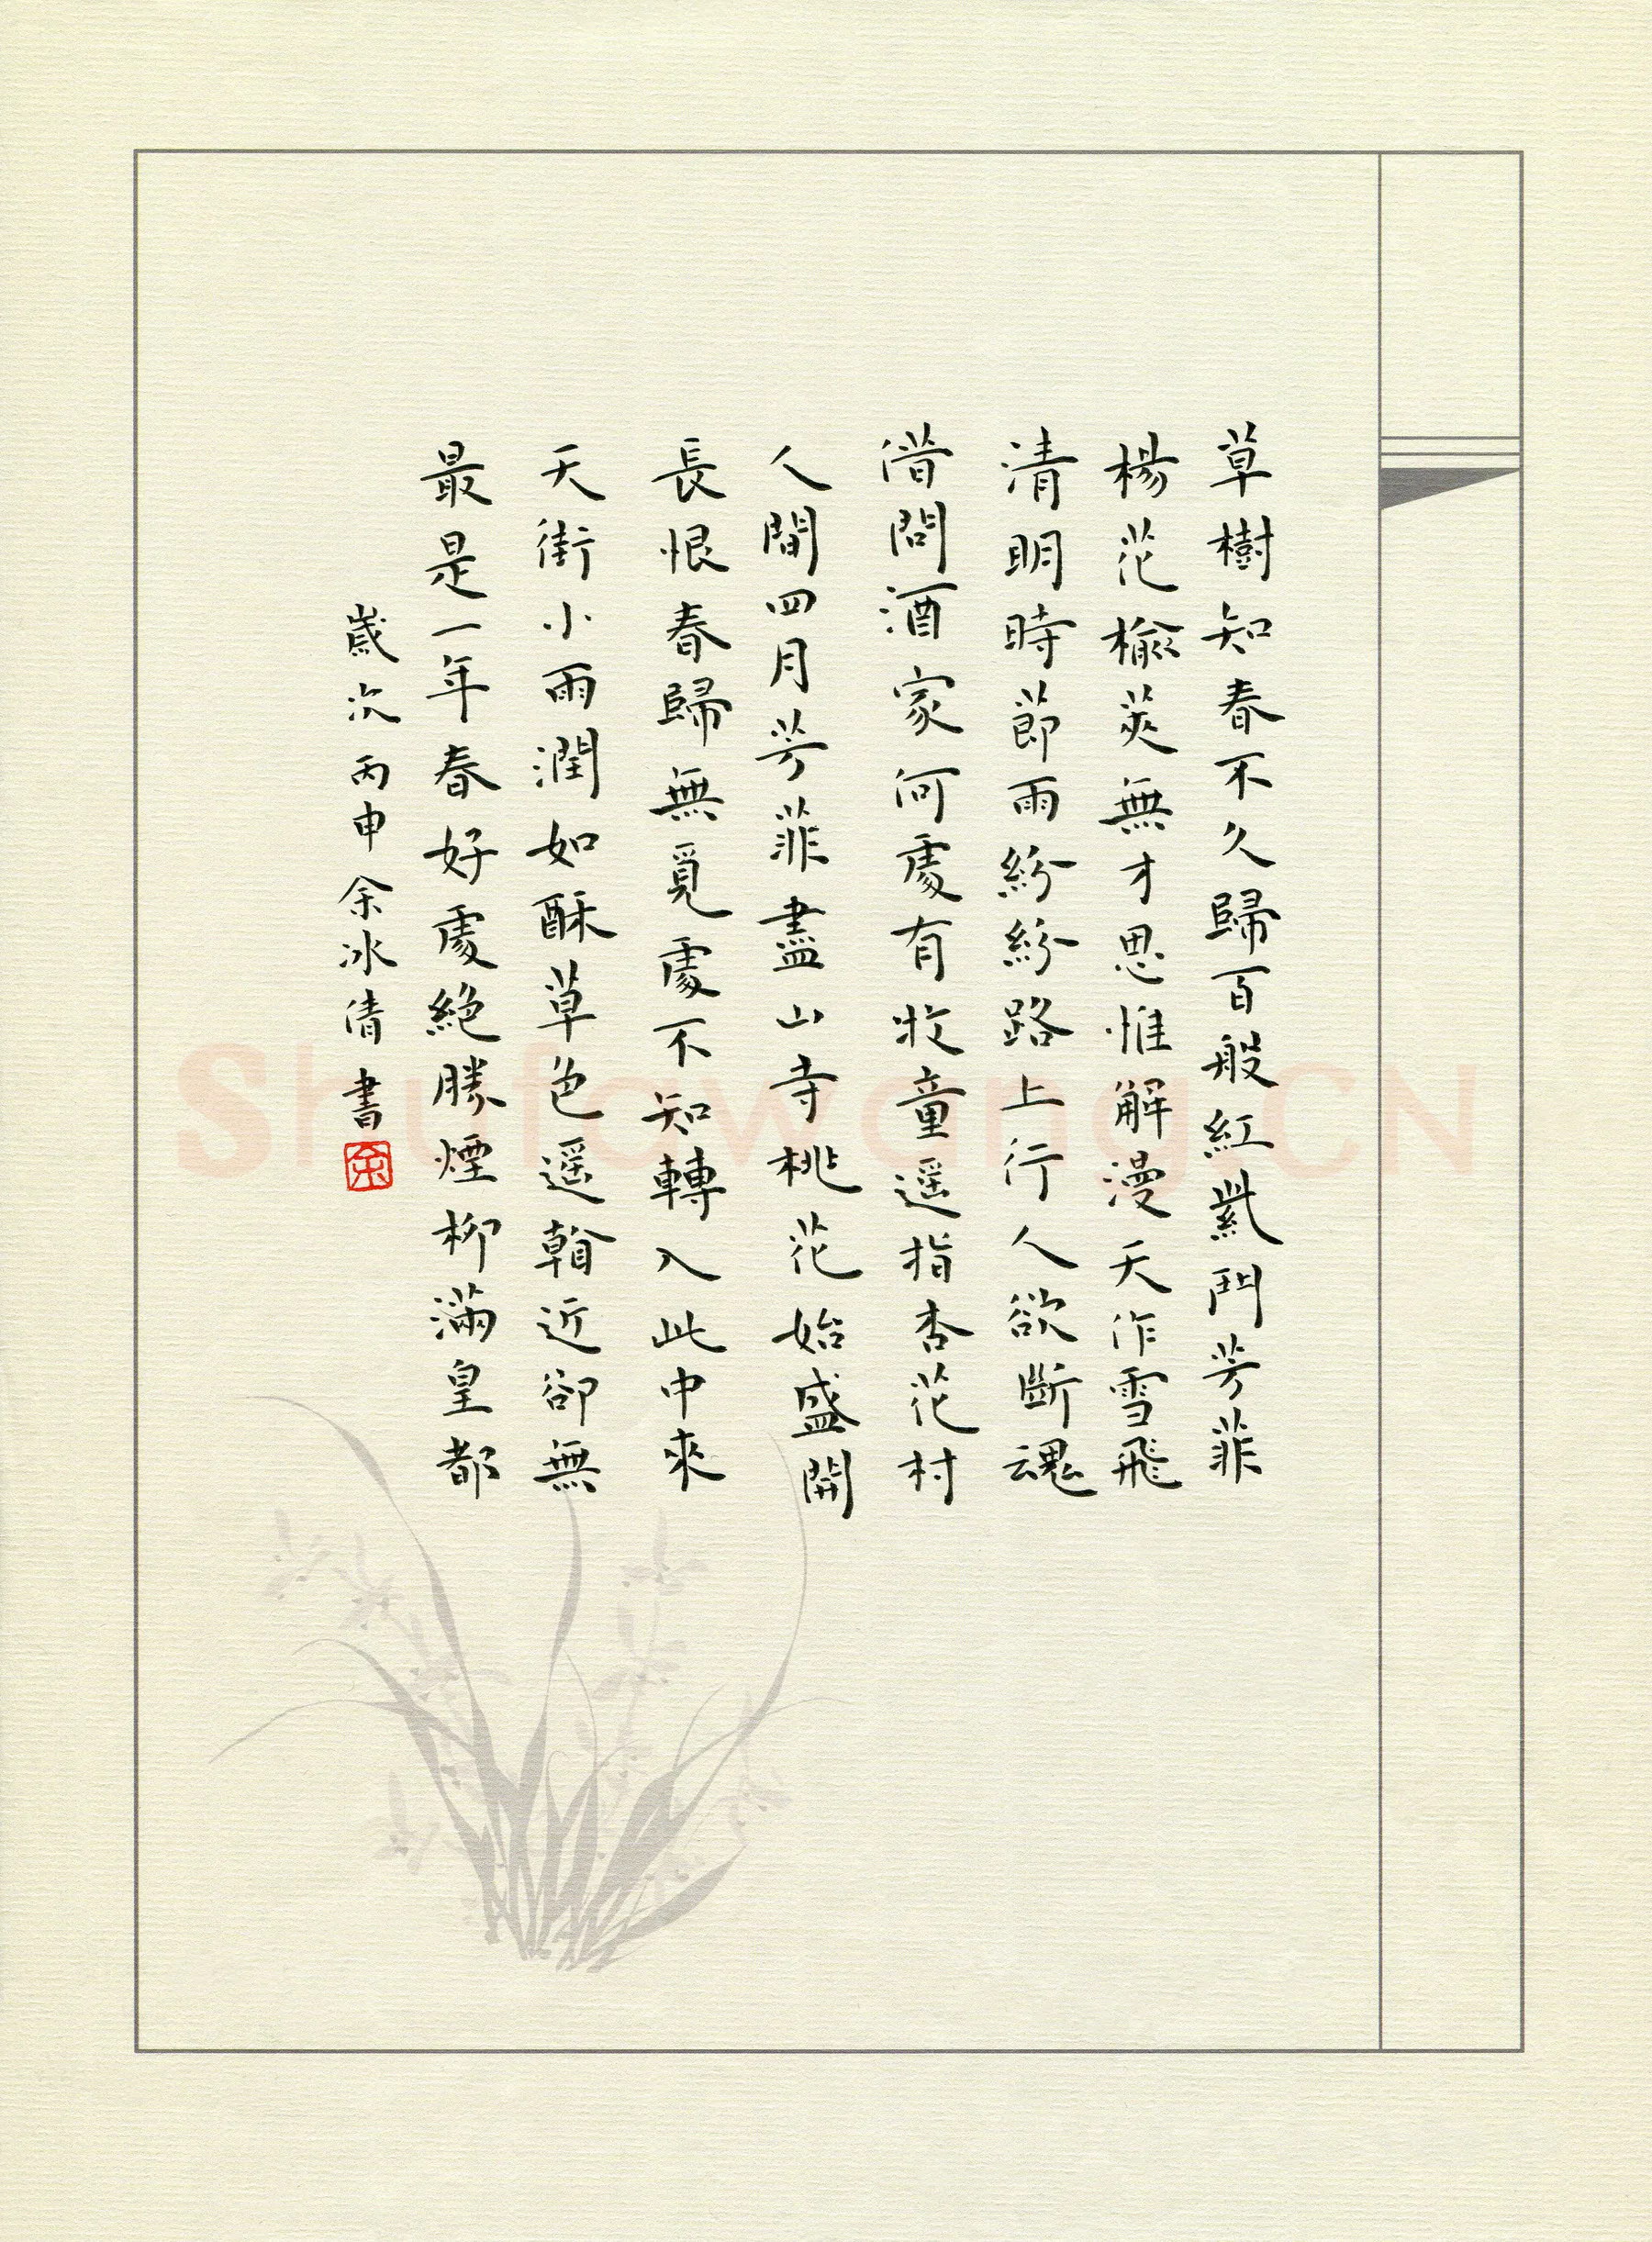 草樹知春不久歸百般紅紫鬥芳菲
楊花榆莢無才思惟解漫天作雪飛
清明時節雨紛紛路上行人欲斷魂
借問酒家何處有牧童遥指杏花村
人間四月芳菲盡山寺桃花始盛開
長恨春歸無覓處不知轉入此中來
天街小雨潤如酥草色遥看近卻無
最是一年春好處絶勝煙柳滿皇都
歲次丙申余冰倩書
余
Shufawang.CN